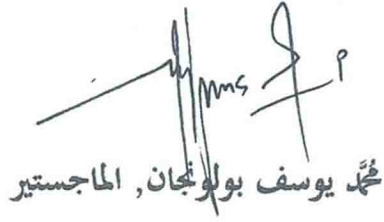 مُحَمَّد يوسف بولونجان, الماجستير